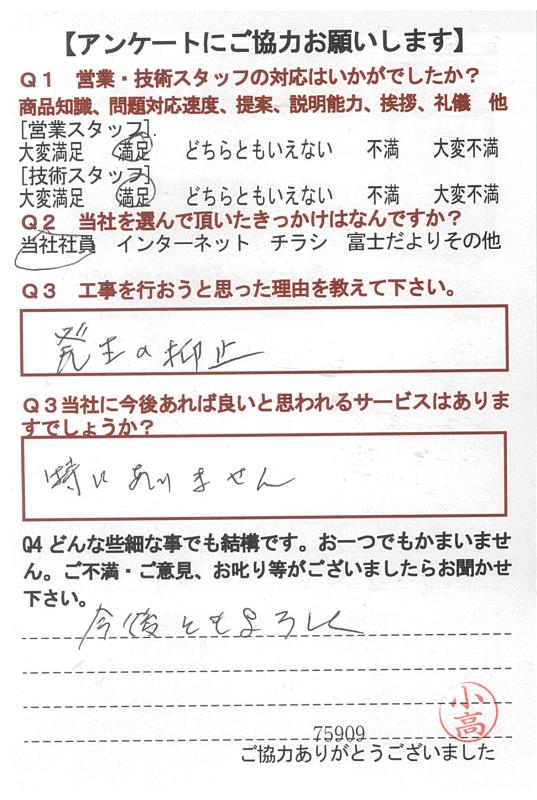 【アンケートにご協力お願いします】
Q1 営業・技術スタッフの対応はいかがでしたか？
商品知識、問題対応速度、提案、説明能力、挨拶、礼儀 他
[営業スタッフ].
大変満足 満足 どちらともいえない 不満 大変不満
[技術スタッフ]
大変満足 満足 どちらともいえない 不満 大変不満
Q2 当社を選んで頂いたきっかけはなんですか？
当社社員 インターネット チラシ 富士だよりその他
Q3 工事を行おうと思った理由を教えて下さい。
発生の抑止
Q3当社に今後あれば良いと思われるサービスはありま
すでしょうか？
特にありません
Q4 どんな些細な事でも結構です。お一つでもかまいませ
ん。ご不満・ご意見、お叱り等がございましたらお聞かせ
下さい。
今後ともよろしく
小高
75909
ご協力ありがとうございました